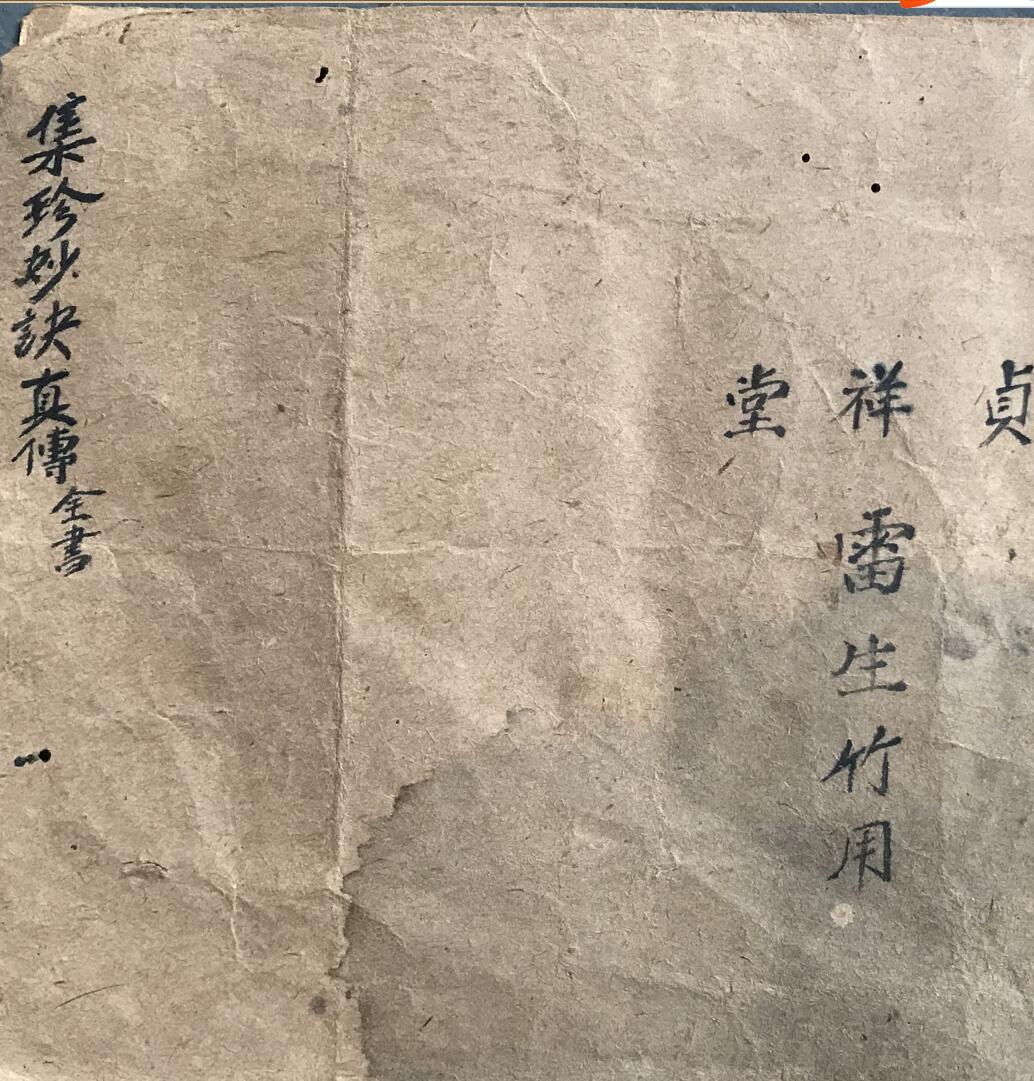 貞
祥雷生竹用
堂
集珍妙訣真傳全書